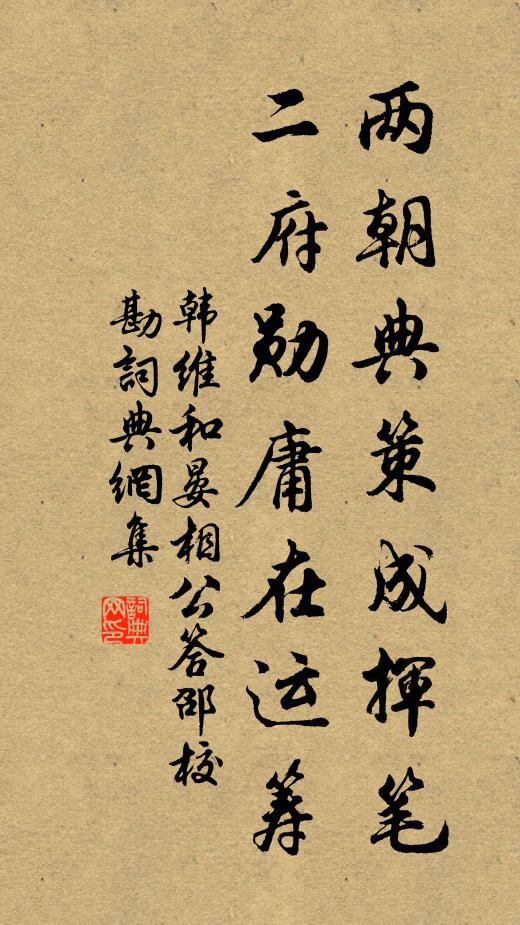 两朝典策成揮笔
二府勋庸在运筹
韩維和晏相公答邵校
勘詞典網集
詞典网印